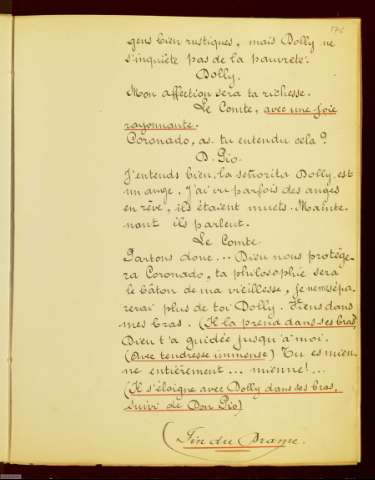 gens bien rustiques, mais Dolly ne
s'inquiète pas de la pauvreté.
Dolly.
Mon affection sera ta richesse.
Le Comte, avec une joie
rayonnante.
Coronado, as-tu entendu cela?
D. Pio.
J'entends bien, la señorita Dolly est
un ange. J'ai vu parfois des anges
en rêve, ils étaient muets. Mainte-
nant ils parlent.
Le Comte
Partons donc... Dieu nous protège-
ra Coronado, ta philosophie sera
le bâton de ma vieillesse, je ne me sépa-
rerai plus de toi Dolly. Viens dans
mes bras. (Il la prend dans ses bras)
Dieu t'a guidée jusqu'à moi.
(Avec tendresse immense) Tu es mien-
ne entièrement... mienne!...
(Il s'éloigne avec Dolly dans ses bras,
suivi de Don Pio)
Fin du Drame.